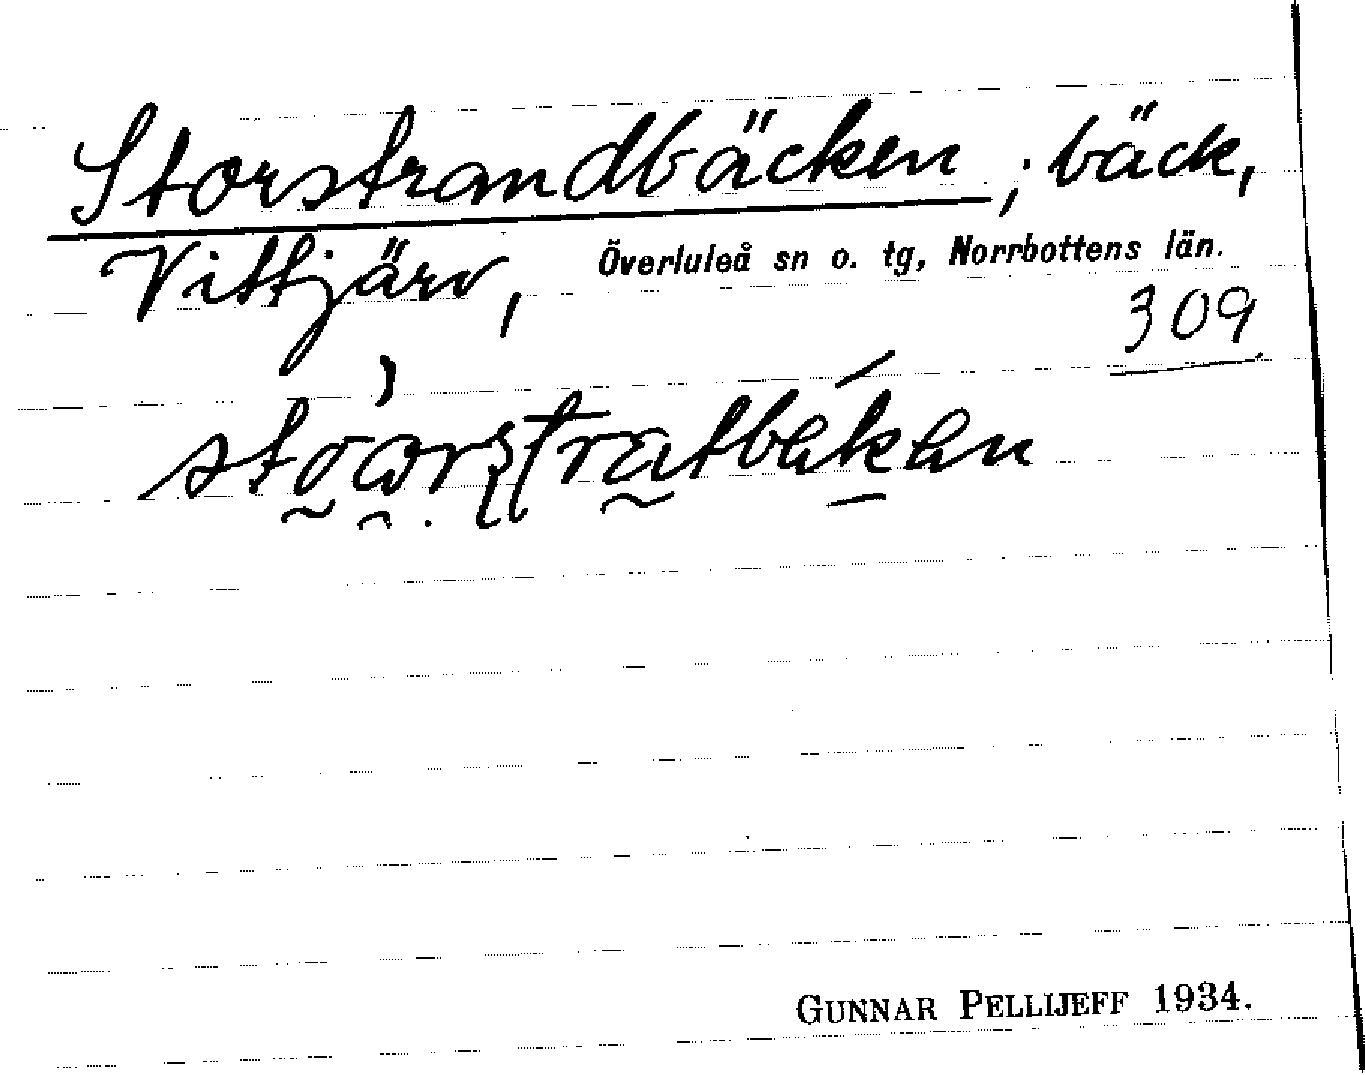 Storstrandbäcken; bäck,
Vittjärv, Överluleå sn o. tg, Norrbottens län.
309
GUNNAR PELLIJEFF 1934.